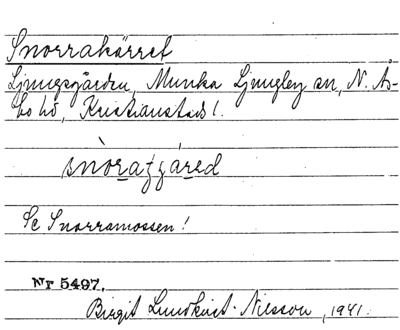 Snorrakärret
Ljungsgården, Munka Ljungby sn, N. Ås-
bo hd, Kristianstads l.
Se Snorramossen!
Nr 5497.
Birgit Lundkvist-Nilsson, 1941.